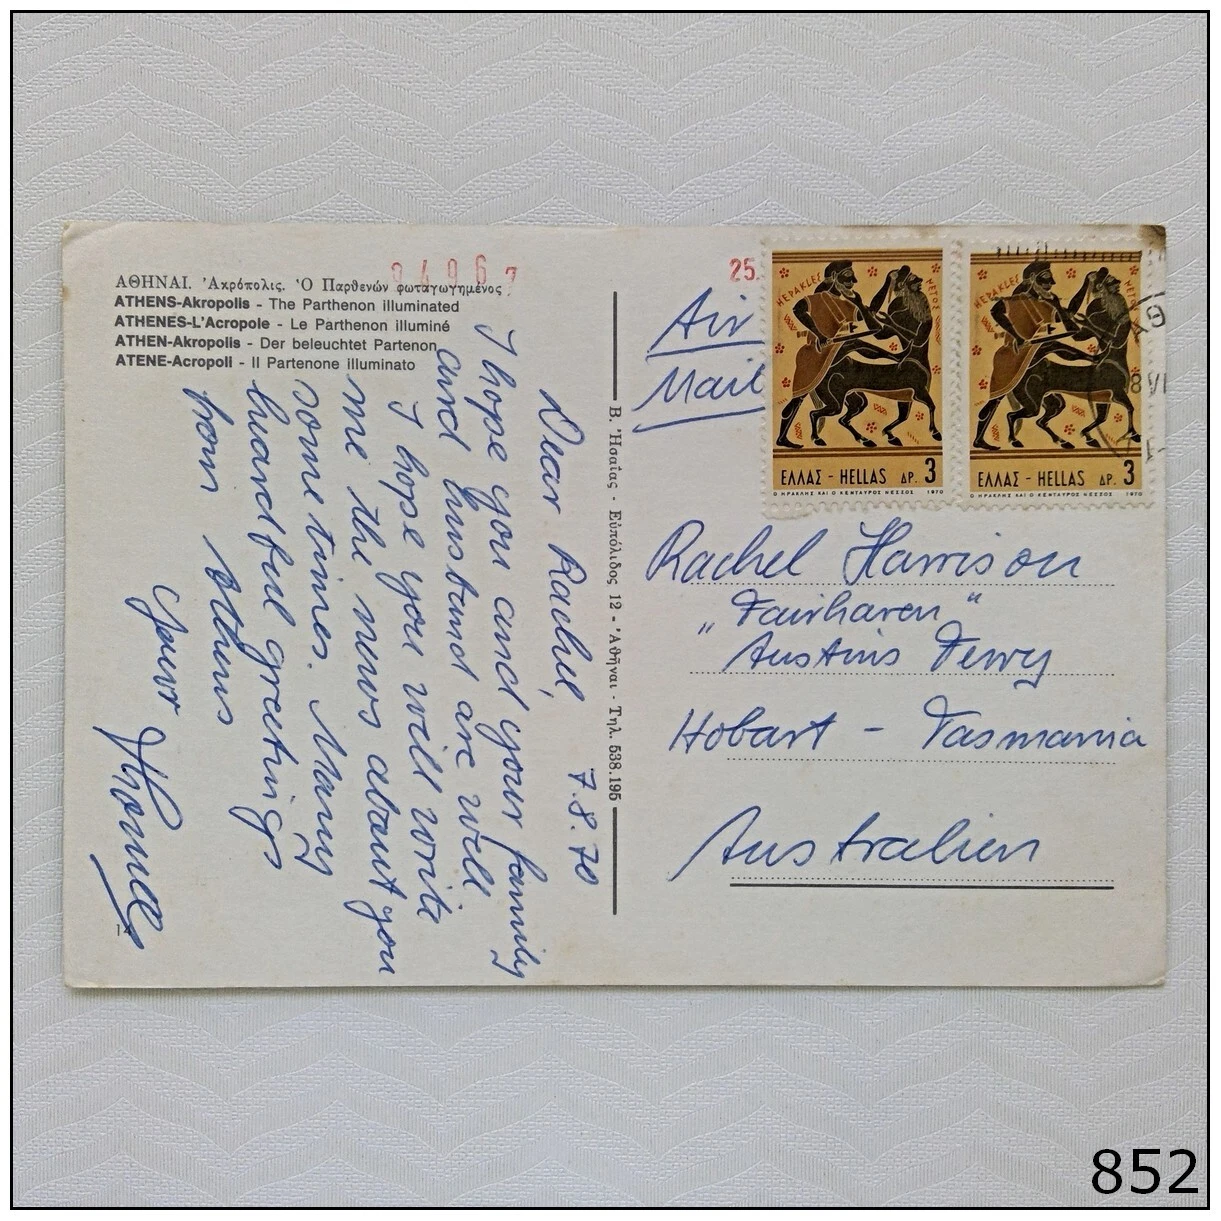 ΑΘΗΝΑΙ. Ἀκρόπολις. Ὁ Παρθενών φωταγωγημένος
ATHENS-Akropolis - The Parthenon illuminated
ATHENES-L'Acropole - Le Parthenon illuminé
ATHEN-Akropolis - Der beleuchtet Partenon
ATENE-Acropoli - Il Partenone illuminato
7.8.70
Dear Rachel,
I hope you and your family
and husband are well
I hope you will write
me the news about you
some times. Many
heardful greetings
from Athens
Your Thomas
14
Β. Ἡσαΐας - Εὐπόλιδος 12 - Ἀθῆναι - Τηλ. 538.195
25.
Air
Mail
HERAKLES
ΝΕΤΟΣ
ΕΛΛΑΣ - HELLAS ΔΡ. 3
Ο ΗΡΑΚΛΗΣ ΚΑΙ Ο ΚΕΝΤΑΥΡΟΣ ΝΕΣΣΟΣ 1970
HERAKLES
ΝΕΤΟΣ
ΕΛΛΑΣ - HELLAS ΔΡ. 3
Ο ΗΡΑΚΛΗΣ ΚΑΙ Ο ΚΕΝΤΑΥΡΟΣ ΝΕΣΣΟΣ 1970
Rachel Harrison
„Fairhaven"
Austins Ferry
Hobart - Tasmania
Australien
852